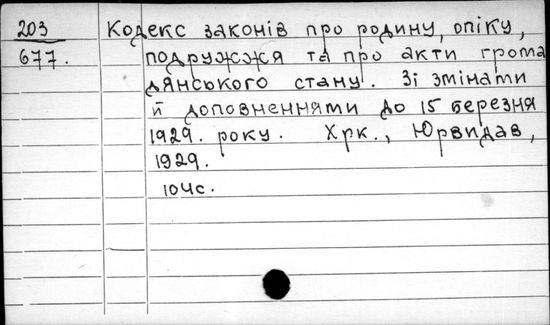 203 Кодекс законів про родину, опіку,
677. подружжя та про акти грома
дянського стану. Зі змінами
й доповненнями до 15 березня
1929. року. Хрк., Юрвидав,
1929.
104с.